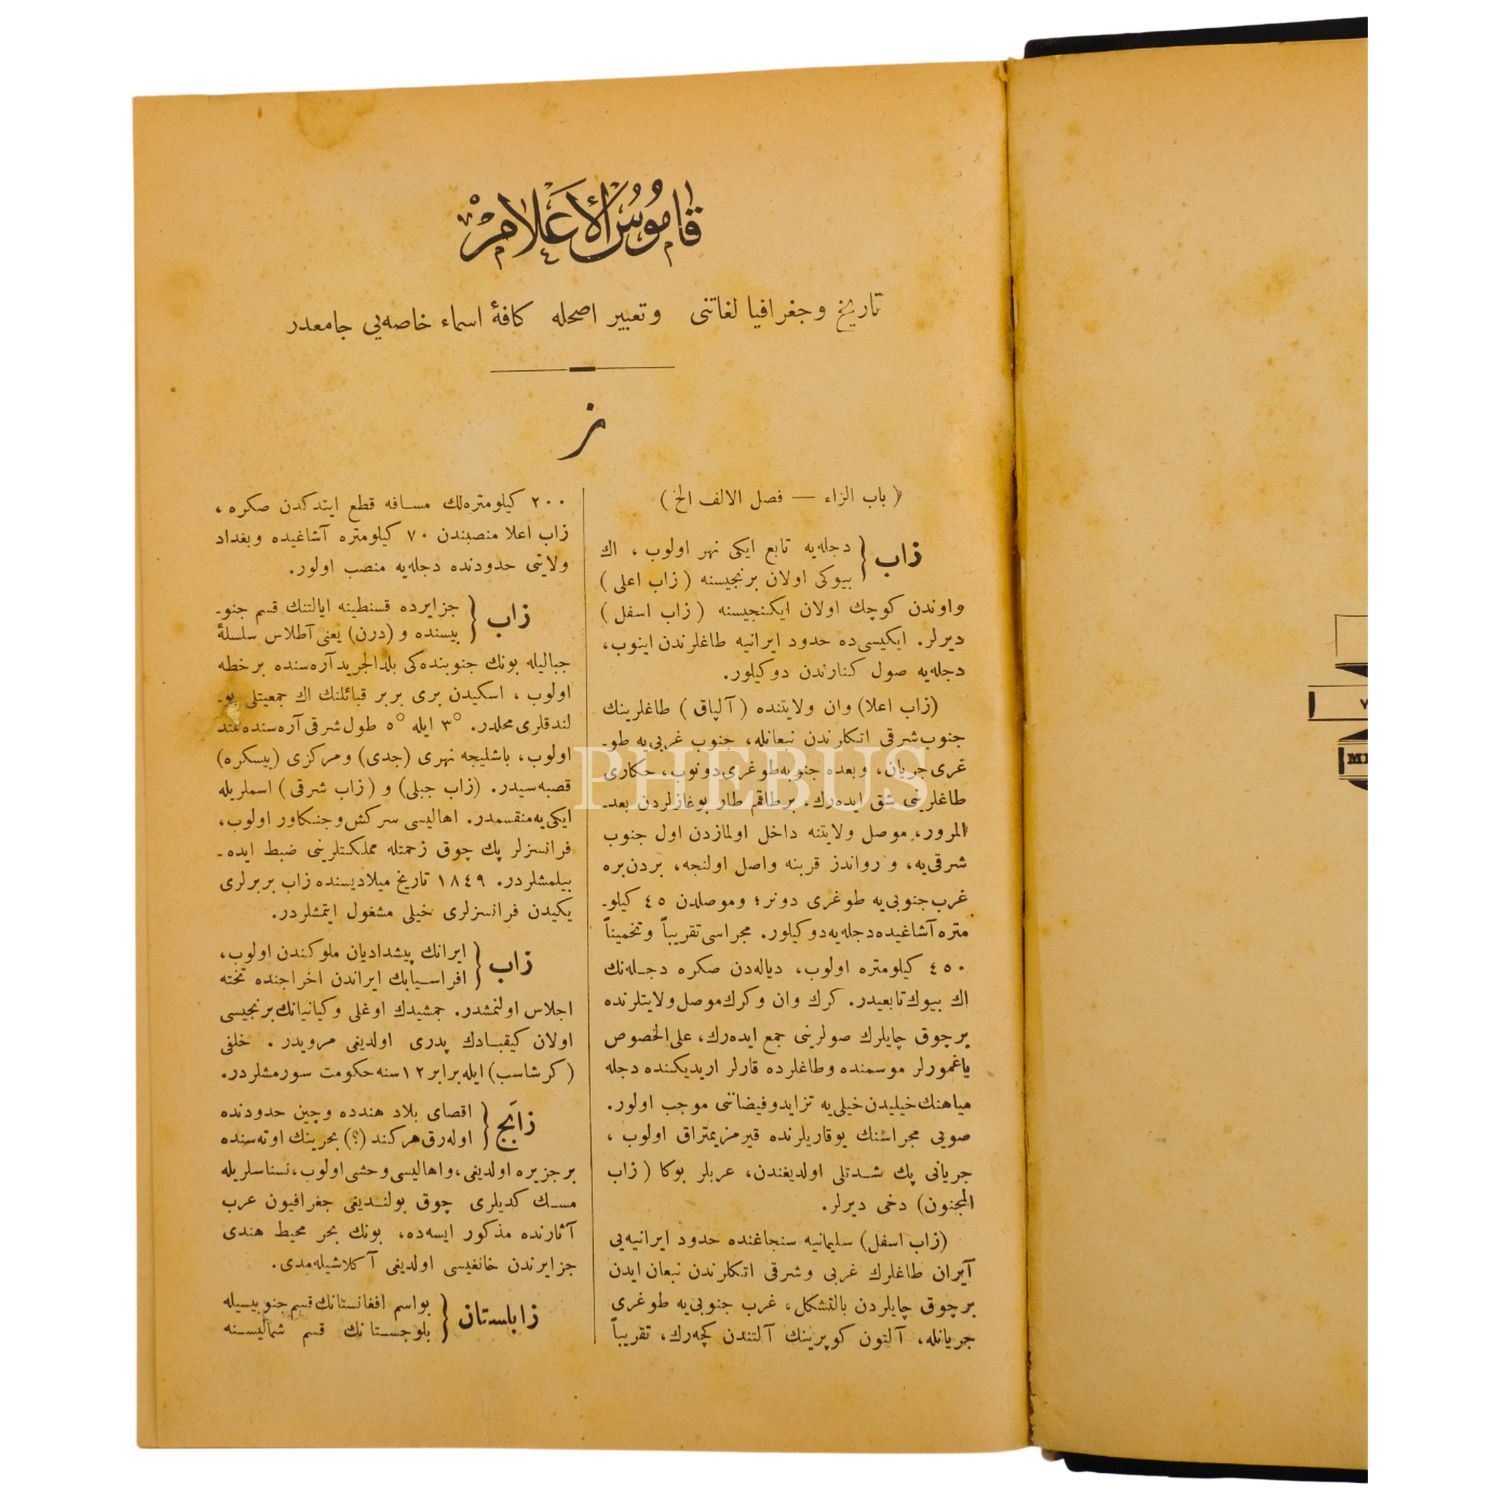 قاموس الأعلام
تاريخ وجغرافيا لغاتنى وتعبير اصحله كافۀ اسماء خاصه‌يى جامعدر
ز
( باب الزاء — فصل الالف الخ )
زاب { دجله‌يه تابع ايكى نهر اولوب ، اك
بيوكى اولان برنجيسنه ( زاب اعلى )
واوندن كوچك اولان ايكنجيسنه ( زاب اسفل )
ديرلر. ايكيسى‌ده حدود ايرانيه طاغلرندن اينوب،
دجله‌يه صول كنارندن دوكيلور.
(زاب اعلا) وان ولايتنده ( آلپاق ) طاغلرينك
جنوب شرقى اتكلرندن نبعانله، جنوب غربى‌يه طو-
غرى جريان، وبعده جنوبه طوغرى دونوب، حكارى
طاغلرينى شق ايده‌رك، برطاقم طار بوغازلردن بعد-
المرور، موصل ولايتنه داخل اولمازدن اول جنوب
شرقى‌يه، و رواندز قربنه واصل اولنجه، بردن بره
غرب جنوبى‌يه طوغرى دونر؛ وموصلدن ٤٥ كيلو-
متره آشاغيده دجله‌يه دوكيلور. مجراسى تقريباً وتخميناً
٤٥٠ كيلومتره اولوب، دياله‌دن صكره دجله‌نك
اك بيوك تابعيدر. كرك وان وكرك موصل ولايتلرنده
برچوق چايلرك صولرينى جمع ايده‌رك، على‌الخصوص
ياغمورلر موسمنده وطاغلرده قارلر اريديكنده دجله
مياهنك خيليدن خيلى‌يه تزايد وفيضاننى موجب اولور.
صويى مجراسنك يوقاريلرنده قيرمزيمتراق اولوب ،
جريانى پك شدتلى اولديغندن، عربلر بوكا ( زاب
المجنون) دخى ديرلر.
(زاب اسفل) سليمانيه سنجاغنده حدود ايرانيه‌يى
آيران طاغلرك غربى وشرقى اتكلرندن نبعان ايدن
برچوق چايلردن بالتشكل، غرب جنوبى‌يه طوغرى
جريانله، آلتون كوپرينك آلتندن كچه‌رك، تقريباً
٢٠٠ كيلومتره‌لك مسافه قطع ايتدكدن صكره ،
زاب اعلا منصبندن ٧٠ كيلومتره آشاغيده وبغداد
ولايتى حدودنده دجله‌يه منصب اولور.
زاب { جزايرده قسنطينه ايالتنك قسم جنو-
بيسنده و (درن) يعنى آطلاس سلسلۀ
جباليله بونك جنوبنده‌كى بلدالجريد آره‌سنده برخطه
اولوب ، اسكيدن برى بربر قبائلنك اك جمعيتلى بو-
لندقلرى محلدر. ٣° ايله ٥° طول شرقى آره‌سنده ممتد
اولوب، باشليجه نهرى (جدى) ومركزى (بيسكره)
قصبه‌سيدر. (زاب جبلى) و (زاب شرقى) اسملريله
ايكى‌يه منقسمدر. اهاليسى سركش وجنكاور اولوب،
فرانسزلر پك چوق زحمتله مملكتلرينى ضبط ايده-
بيلمشلردر. ١٨٤٩ تاريخ ميلاديسنده زاب بربرلرى
يكيدن فرانسزلرى خيلى مشغول ايتمشلردر.
زاب { ايرانك پيشداديان ملوكندن اولوب،
افراسيابك ايراندن اخراجنده تخته
اجلاس اولنمشدر. جمشيدك اوغلى وكيانيانك برنجيسى
اولان كيقبادك پدرى اولديغى مرويدر . خلفى
(كرشاسب) ايله برابر ١٢ سنه حكومت سورمشلردر.
زابج { اقصاى بلاد هندده وچين حدودنده
اوله‌رق هركند (؟) بحرينك اوته‌سنده
برجزيره اولديغى، واهاليسى وحشى اولوب، نسناسلريله
مسك كديلرى چوق بولنديغى جغرافيون عرب
آثارنده مذكور ايسه‌ده، بونك بحر محيط هندى
جزايرندن خانغيسى اولديغى آكلاشيله‌مدى.
زابلستان { بواسم افغانستانك قسم جنوبيسيله
بلوجستانك قسم شماليسنه
PHEBUS